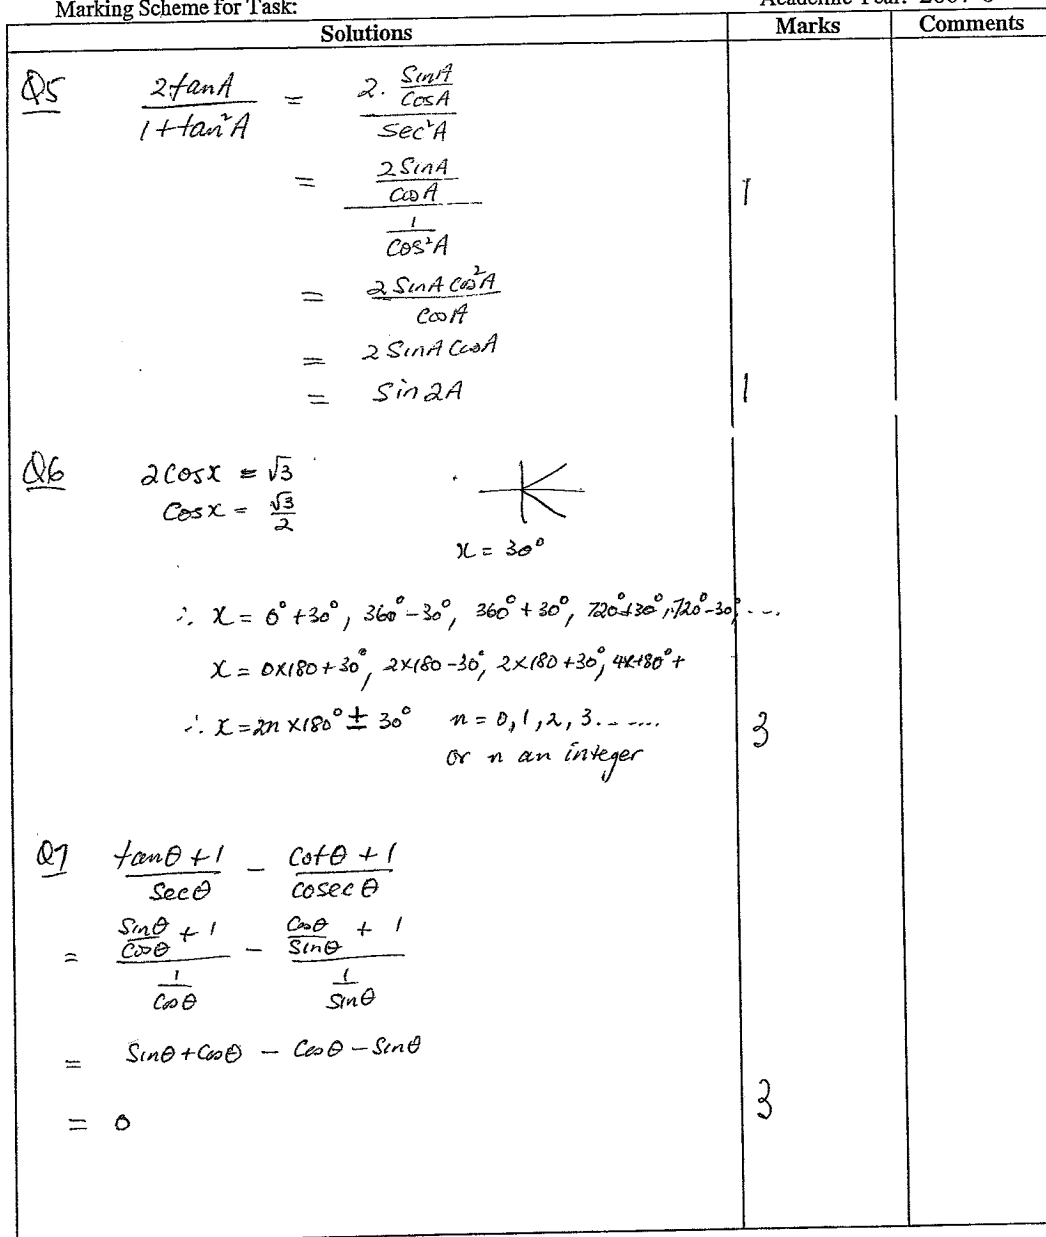 Marking Scheme for Task:
Solutions Marks Comments
Q5 2tanA / 1+tan²A = 2. SinA/CosA / Sec²A
= 2SinA/CosA / 1/Cos²A 1
= 2SinA Cos²A / CosA
= 2SinA CosA
= Sin2A 1
Q6 2Cosx = √3
Cosx = √3/2
x = 30°
∴ x = 0°+30°, 360°-30°, 360°+30°, 720°+30°, 720°-30°, ....
x = 0x180+30°, 2x180-30°, 2x180+30°, 4x180°+
∴ x = 2n x180° ± 30° n = 0, 1, 2, 3.......
or n an integer 3
Q7 tanθ+1 / Secθ - Cotθ+1 / cosecθ
= Sinθ/Cosθ + 1 / 1/Cosθ - Cosθ/Sinθ + 1 / 1/Sinθ
= Sinθ+Cosθ - Cosθ-Sinθ
= 0 3